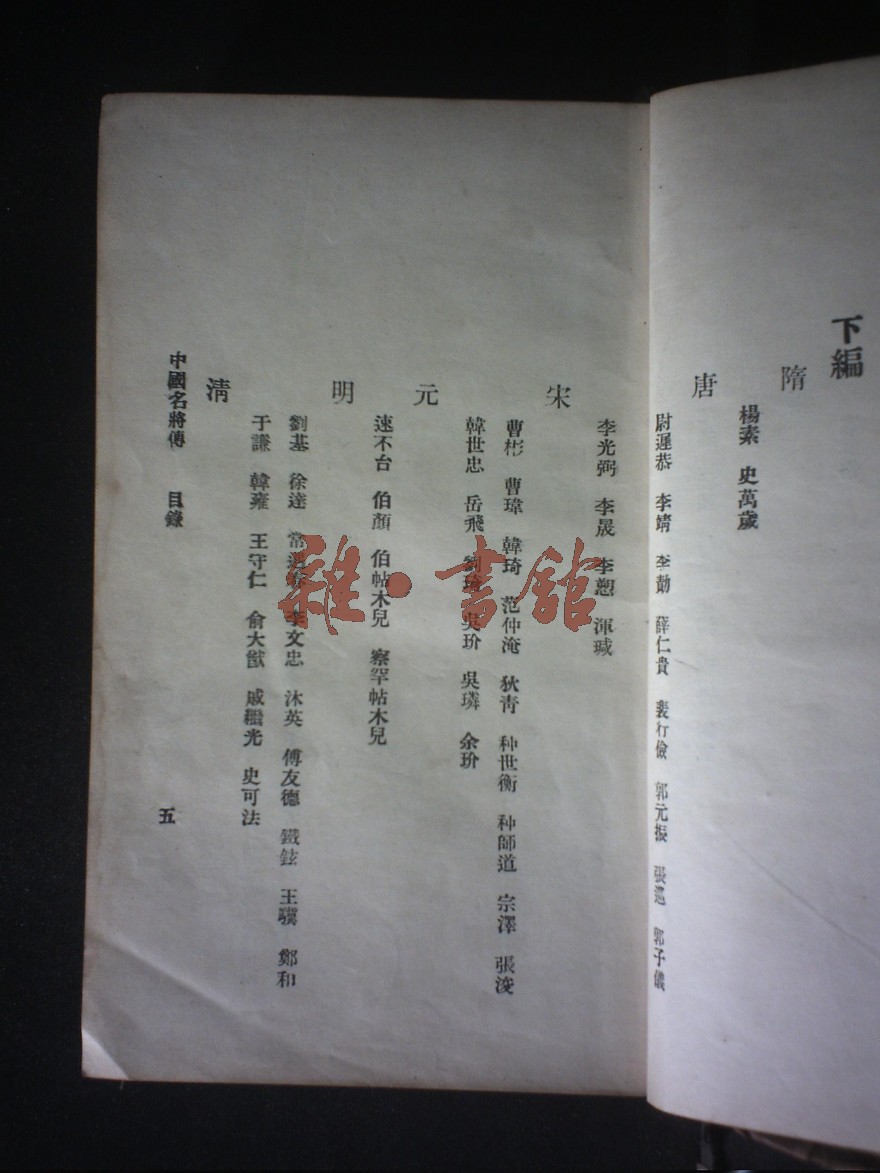 下編
隋
楊素 史萬歲
唐
尉遲恭 李靖 李勣 薛仁貴 裴行儉 郭元振 張巡 郭子儀
李光弼 李晟 李愬 渾瑊
宋
曹彬 曹瑋 韓琦 范仲淹 狄青 种世衡 种師道 宗澤 張浚
韓世忠 岳飛 劉錡 吳玠 吳璘 余玠
元
速不台 伯顏 伯帖木兒 察罕帖木兒
明
劉基 徐達 常遇春 李文忠 沐英 傅友德 鐵鉉 王驥 鄭和
于謙 韓雍 王守仁 俞大猷 戚繼光 史可法
清
中國名將傳 目錄
五
雜·書館